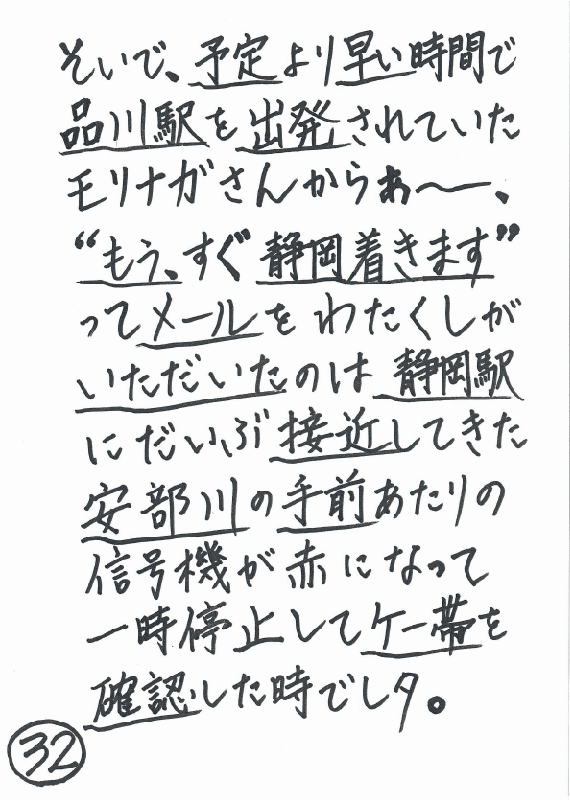 そいで、予定より早い時間で
品川駅を出発されていた
モリナガさんからぁ〜、
“もう、すぐ静岡着きます”
ってメールをわたくしが
いただいたのは静岡駅
にだいぶ接近してきた
安部川の手前あたりの
信号機が赤になって
一時停止してケー帯を
確認した時でしタ。
32